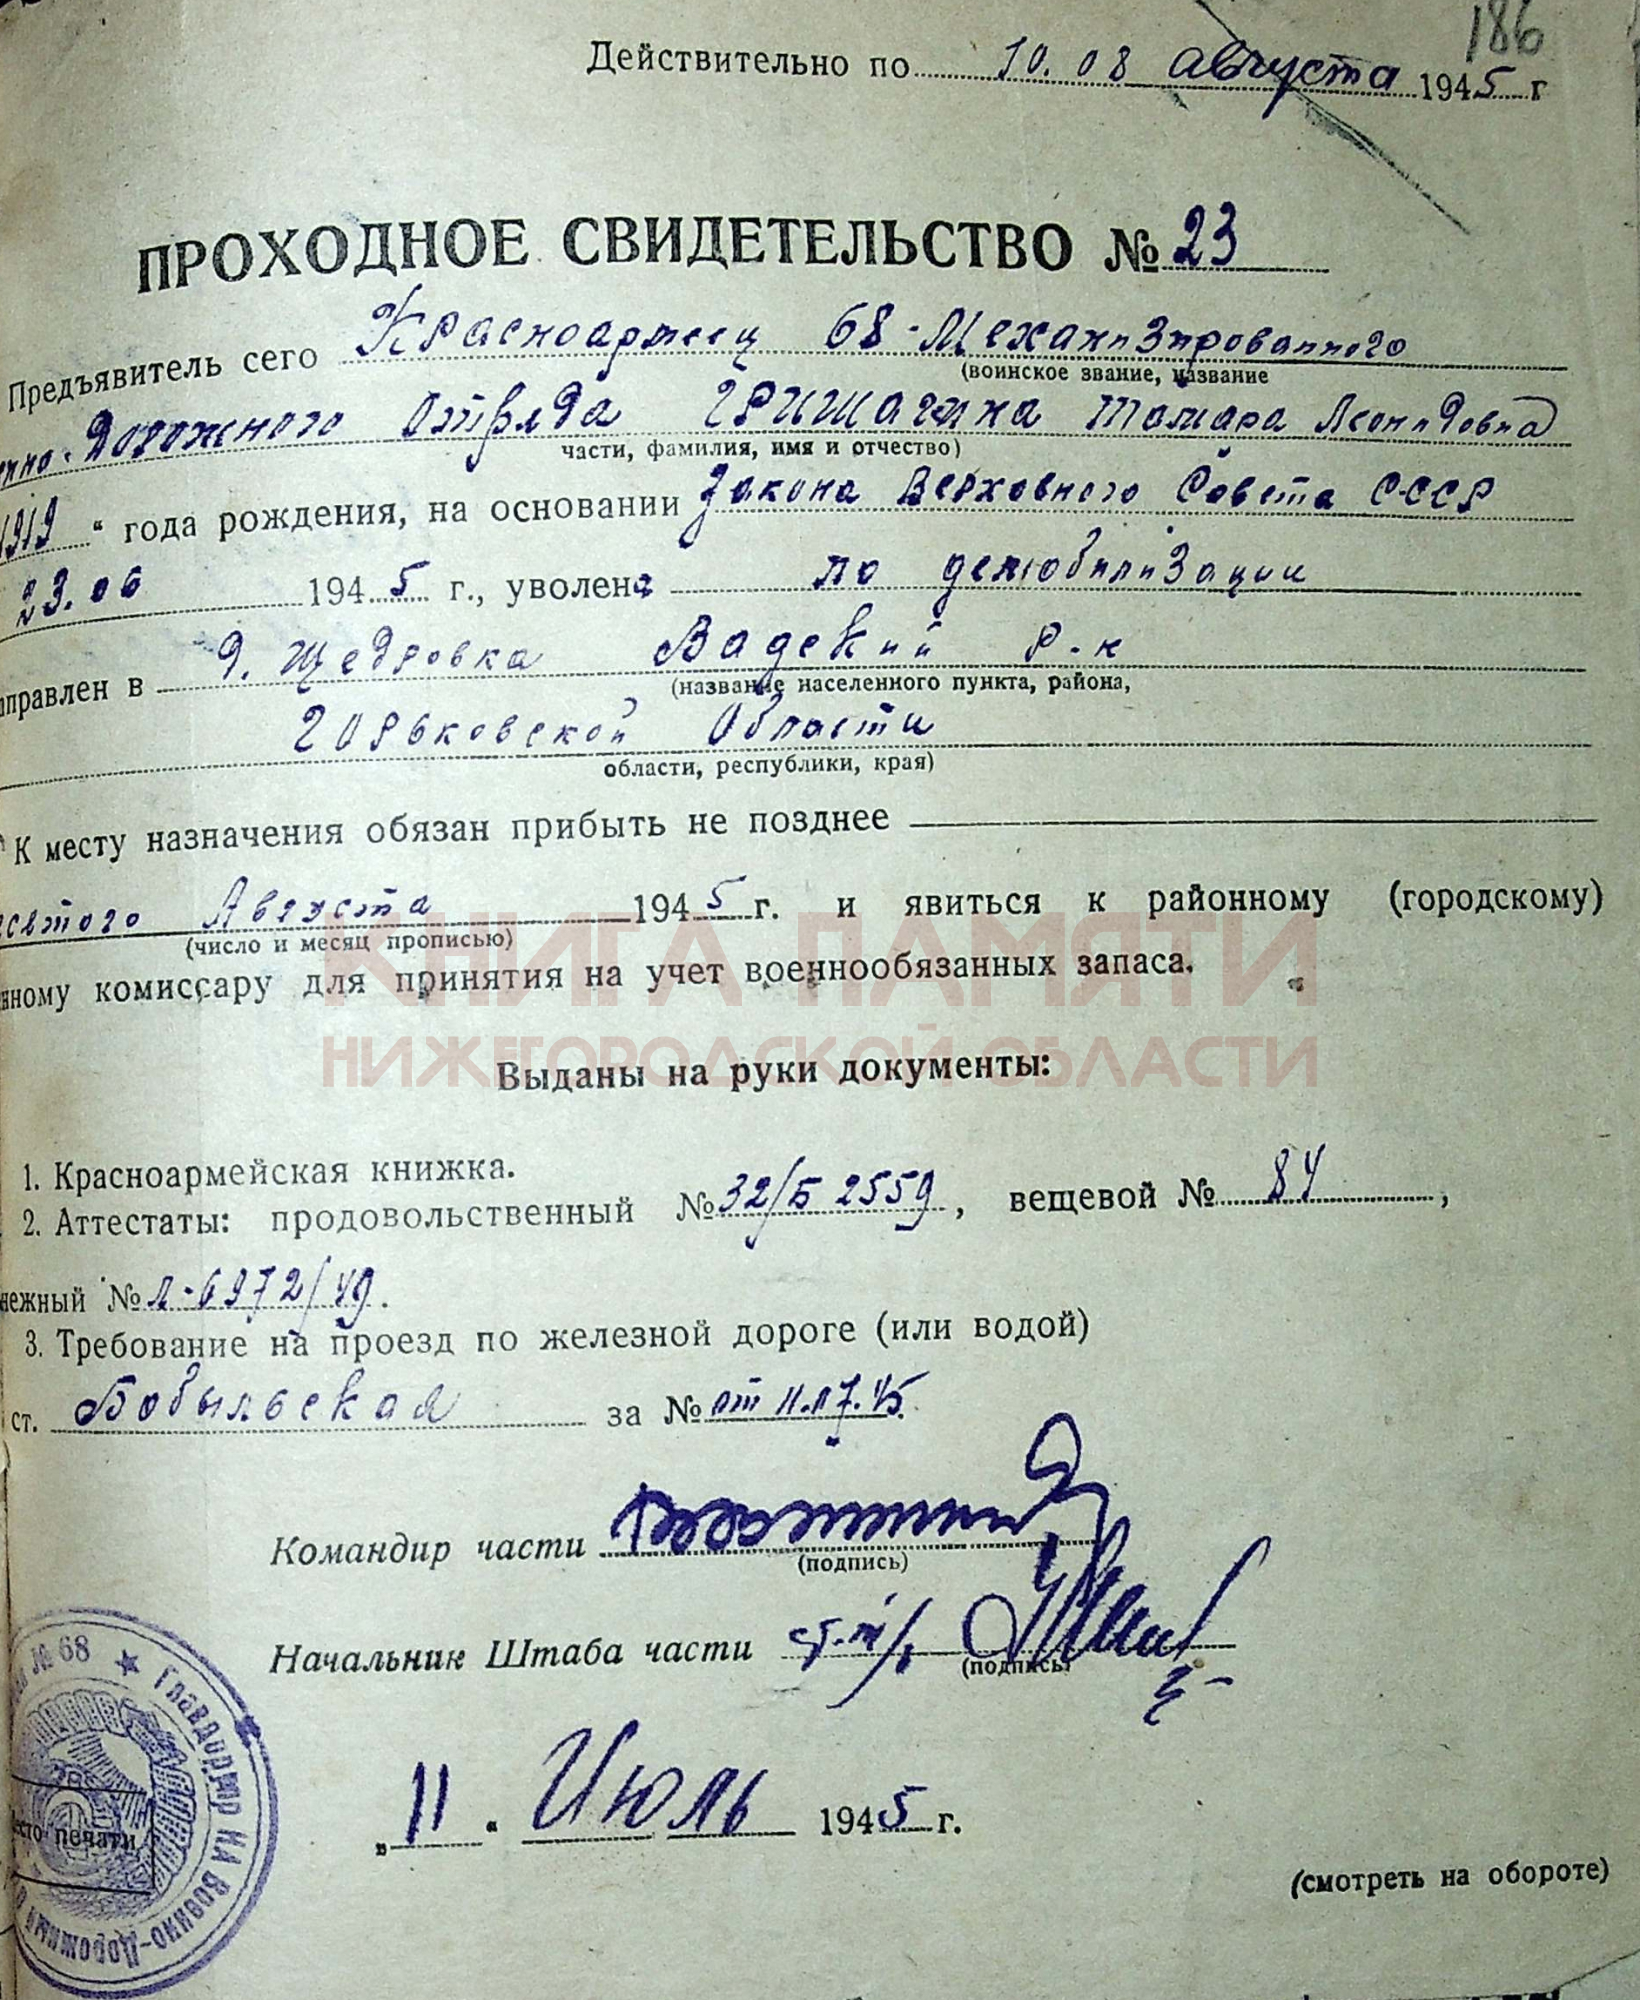 186
Действительно по 10.08 августа 1945 г
ПРОХОДНОЕ СВИДЕТЕЛЬСТВО № 23
Предъявитель сего Красноармеец 68-Механизированного
(воинское звание, название
нно-Дорожного Отряда Гришагина Тамара Леонидовна
части, фамилия, имя и отчество)
1919 " года рождения, на основании Закона Верховного Совета СССР
23.06 1945 г., уволена по демобилизации
аправлен в д. Щедровка Вадский р-н
(название населенного пункта, района,
Горьковской Области
области, республики, края)
К месту назначения обязан прибыть не позднее
есятого Августа 1945 г. и явиться к районному (городскому)
(число и месяц прописью)
нному комиссару для принятия на учет военнообязанных запаса.
КНИГА ПАМЯТИ
НИЖЕГОРОДСКОЙ ОБЛАСТИ
Выданы на руки документы:
1. Красноармейская книжка.
2. Аттестаты: продовольственный № 32/Б 2559, вещевой № 84,
нежный № Л-6972/49.
3. Требование на проезд по железной дороге (или водой)
ст. Бобыльская за № от 11.07.45
Командир части
(подпись)
Начальник Штаба части
(подпись)
„ 11 “ Июль 1945 г.
(смотреть на обороте)
№ 68 ★ Главдорупр КА Военно-Дорожный
место печати